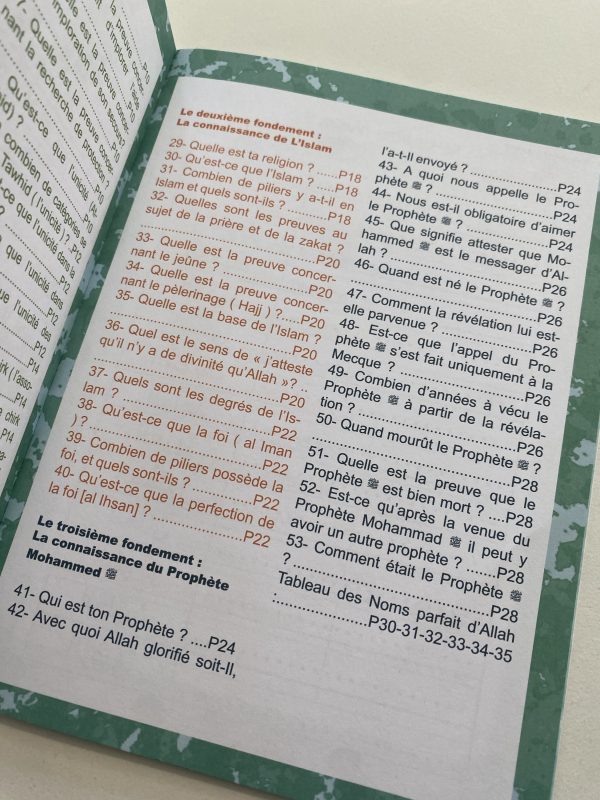 7- Quelle est la preuve
nant la recherche de
Qu'est-ce que l'unicité
combien de catégories se
Tawhid ( l'unicité ) ? ...P12
que l'unicité dans
P12
que l'unicité dans
P12
que l'unicité des
P14
shirk ( l'asso-
P14
P14
Le deuxième fondement :
La connaissance de L'Islam
29- Quelle est ta religion ? .....P18
30- Qu'est-ce que l'Islam ? ...P18
31- Combien de piliers y a-t-il en
Islam et quels sont-ils ? ............P18
32- Quelles sont les preuves au
sujet de la prière et de la zakat ?
..................................................P20
33- Quelle est la preuve concer-
nant le jeûne ? ........................P20
34- Quelle est la preuve concer-
nant le pèlerinage ( Hajj ) ?.....P20
35- Quelle est la base de l'Islam ?
..................................................P20
36- Quel est le sens de « j'atteste
qu'il n'y a de divinité qu'Allah » ?
..................................................P20
37- Quels sont les degrés de l'Is-
lam ? ......................................P22
38- Qu'est-ce que la foi ( al Iman
) ? ............................................P22
39- Combien de piliers possède la
foi, et quels sont-ils ? ..............P22
40- Qu'est-ce que la perfection de
la foi [al Ihsan] ? ......................P22
Le troisième fondement :
La connaissance du Prophète
Mohammed ﷺ
41- Qui est ton Prophète ? ....P24
42- Avec quoi Allah glorifié soit-Il,
l'a-t-Il envoyé ? .......................P24
43- A quoi nous appelle le Pro-
phète ﷺ ? ..............................P24
44- Nous est-il obligatoire d'aimer
le Prophète ﷺ ? .....................P24
45- Que signifie attester que Mo-
hammed ﷺ est le messager d'Al-
lah ? ........................................P26
46- Quand est né le Prophète ﷺ ?
..................................................P26
47- Comment la révélation lui est-
elle parvenue ? .......................P26
48- Est-ce que l'appel du Pro-
phète ﷺ s'est fait uniquement à la
Mecque ? ................................P26
49- Combien d'années à vécu le
Prophète ﷺ à partir de la révéla-
tion ? .......................................P26
50- Quand mourût le Prophète ﷺ ?
..................................................P28
51- Quelle est la preuve que le
Prophète ﷺ est bien mort ? ....P28
52- Est-ce qu'après la venue du
Prophète Mohammad ﷺ il peut y
avoir un autre prophète ? .......P28
53- Comment était le Prophète ﷺ
? ...............................................P28
Tableau des Noms parfait d'Allah
:.................P30-31-32-33-34-35